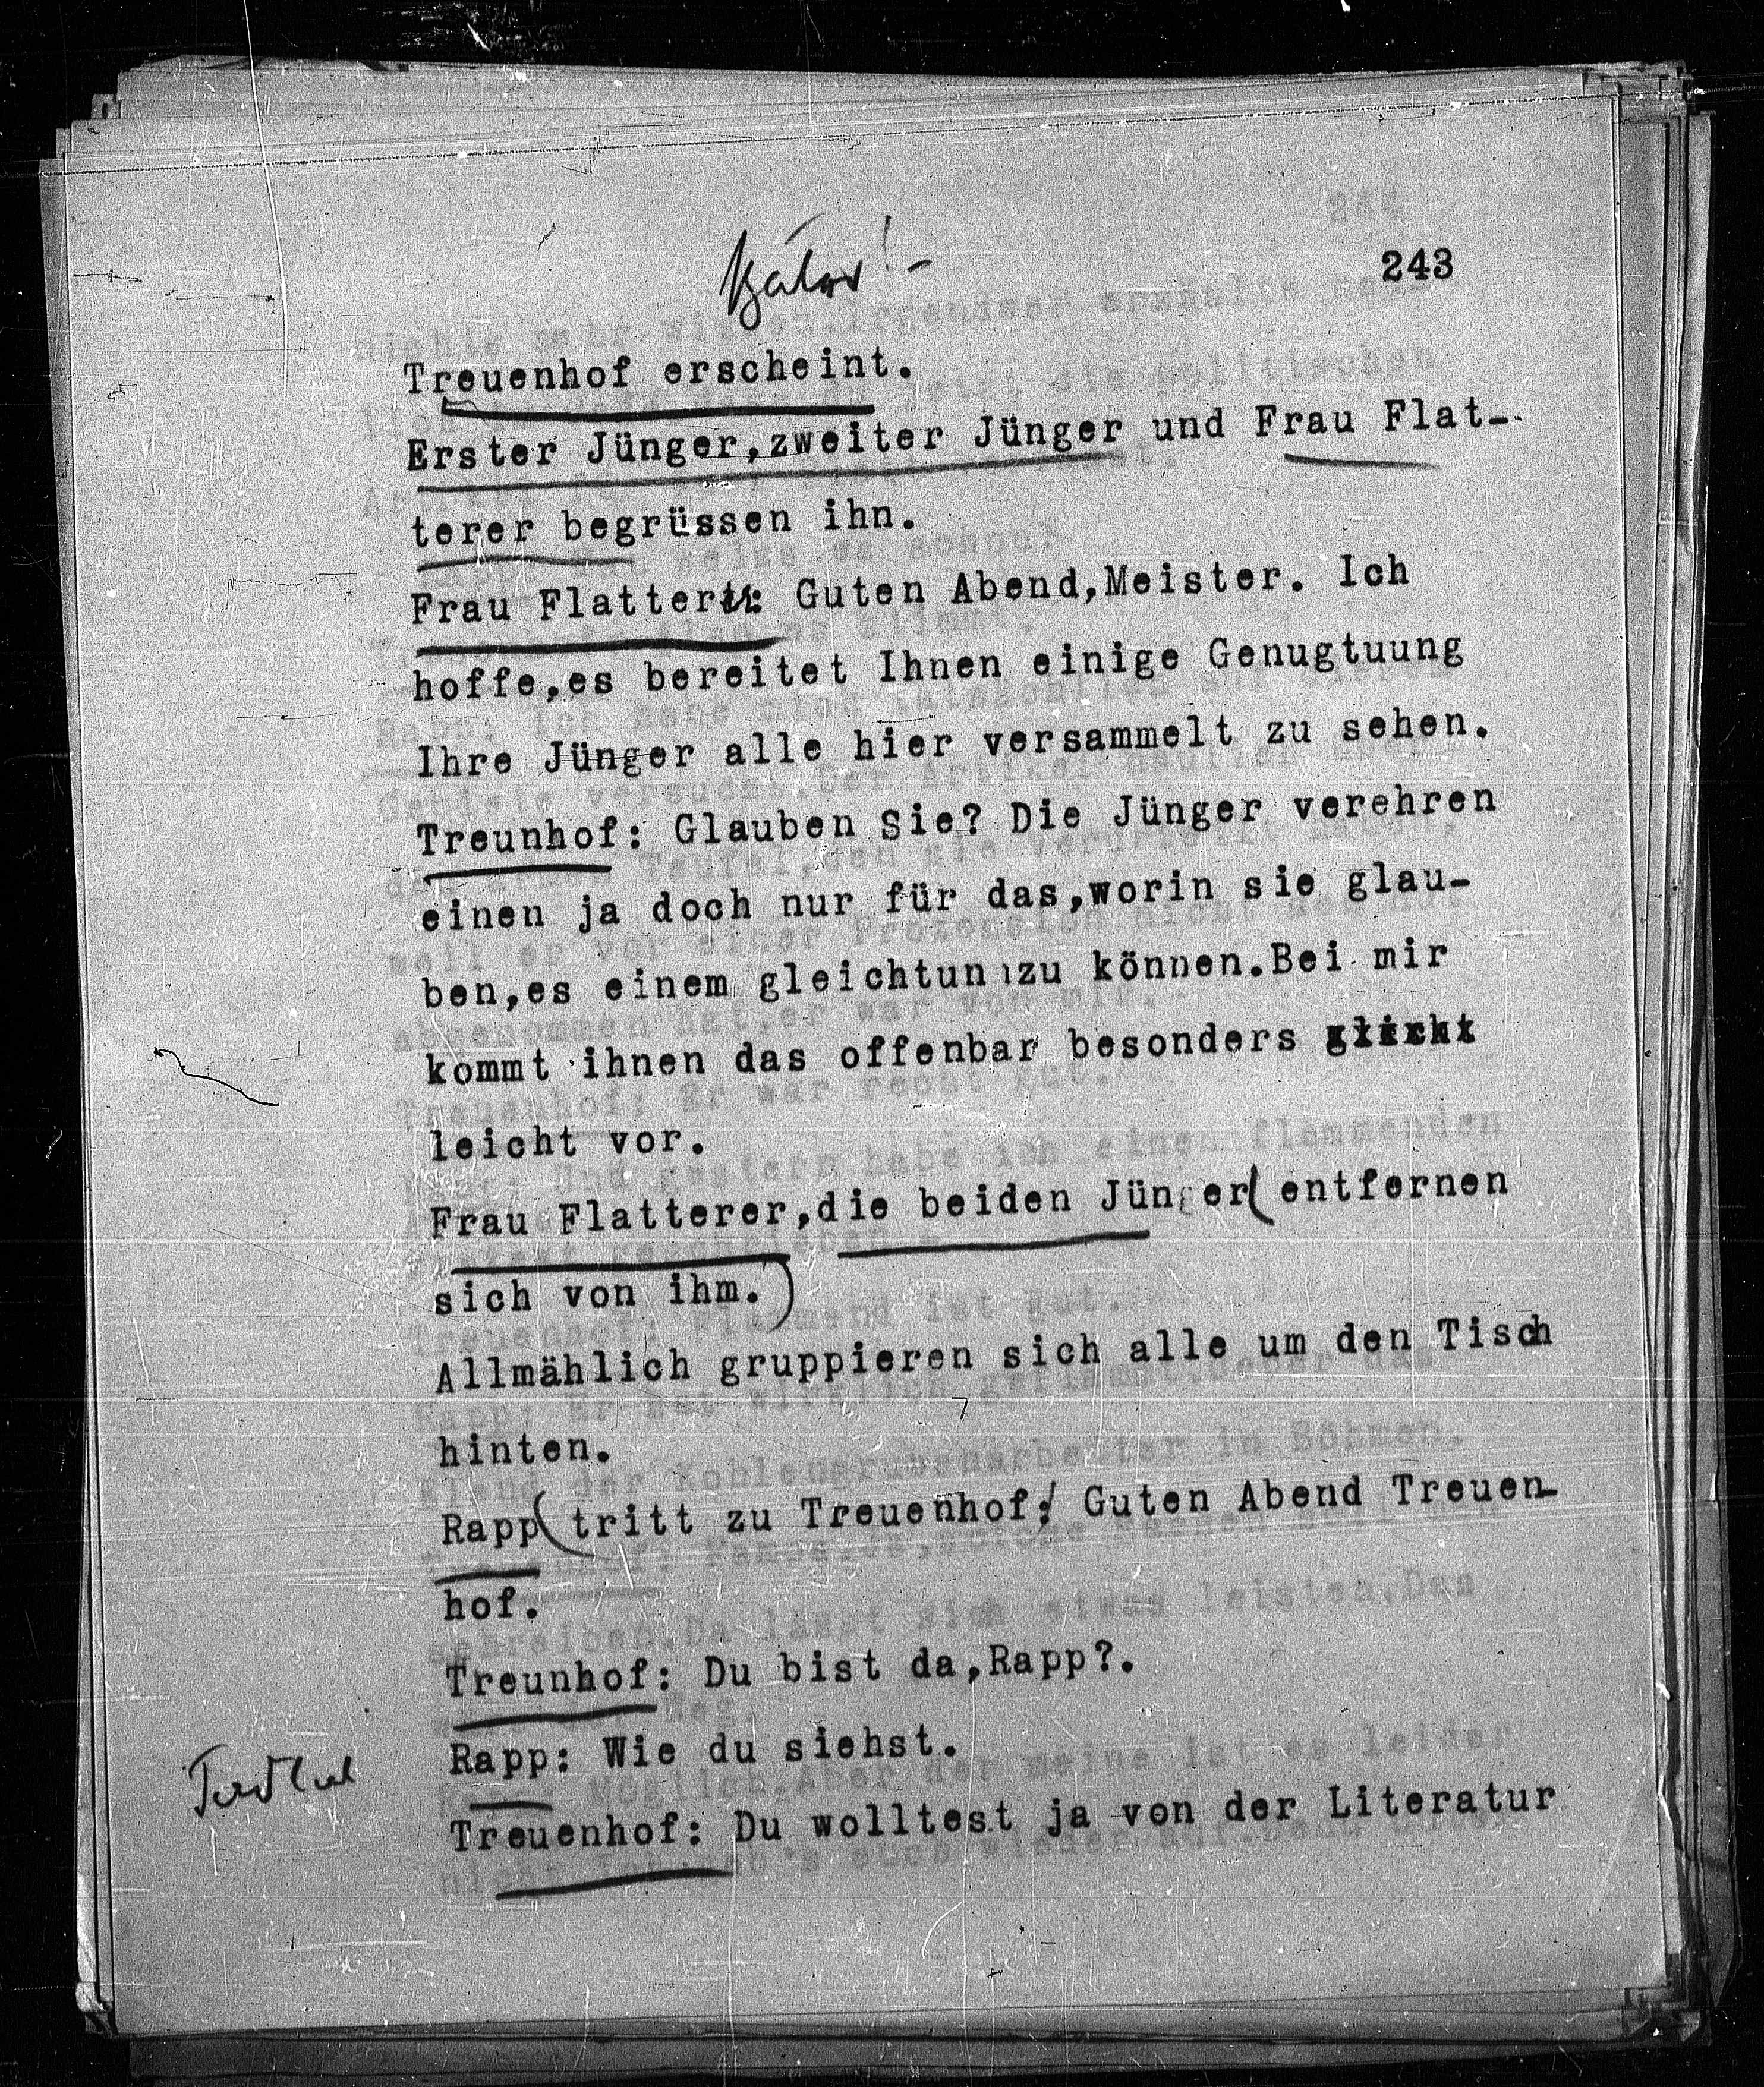 243
später! -
Treuenhof erscheint.
Erster Jünger,zweiter Jünger und Frau Flat-
terer begrüssen ihn.
Frau Flatterer: Guten Abend,Meister. Ich
hoffe,es bereitet Ihnen einige Genugtuung
Ihre Jünger alle hier versammelt zu sehen.
Treunhof: Glauben Sie? Die Jünger verehren
einen ja doch nur für das,worin sie glau-
ben,es einem gleichtun zu können.Bei mir
kommt ihnen das offenbar besonders
leicht vor.
Frau Flatterer,die beiden Jünger( entfernen
sich von ihm.)
Allmählich gruppieren sich alle um den Tisch
hinten.
Rapp( tritt zu Treuenhof: Guten Abend Treuen-
hof.
Treunhof: Du bist da,Rapp?.
Rapp: Wie du siehst.
Treuenhof: Du wolltest ja von der Literatur